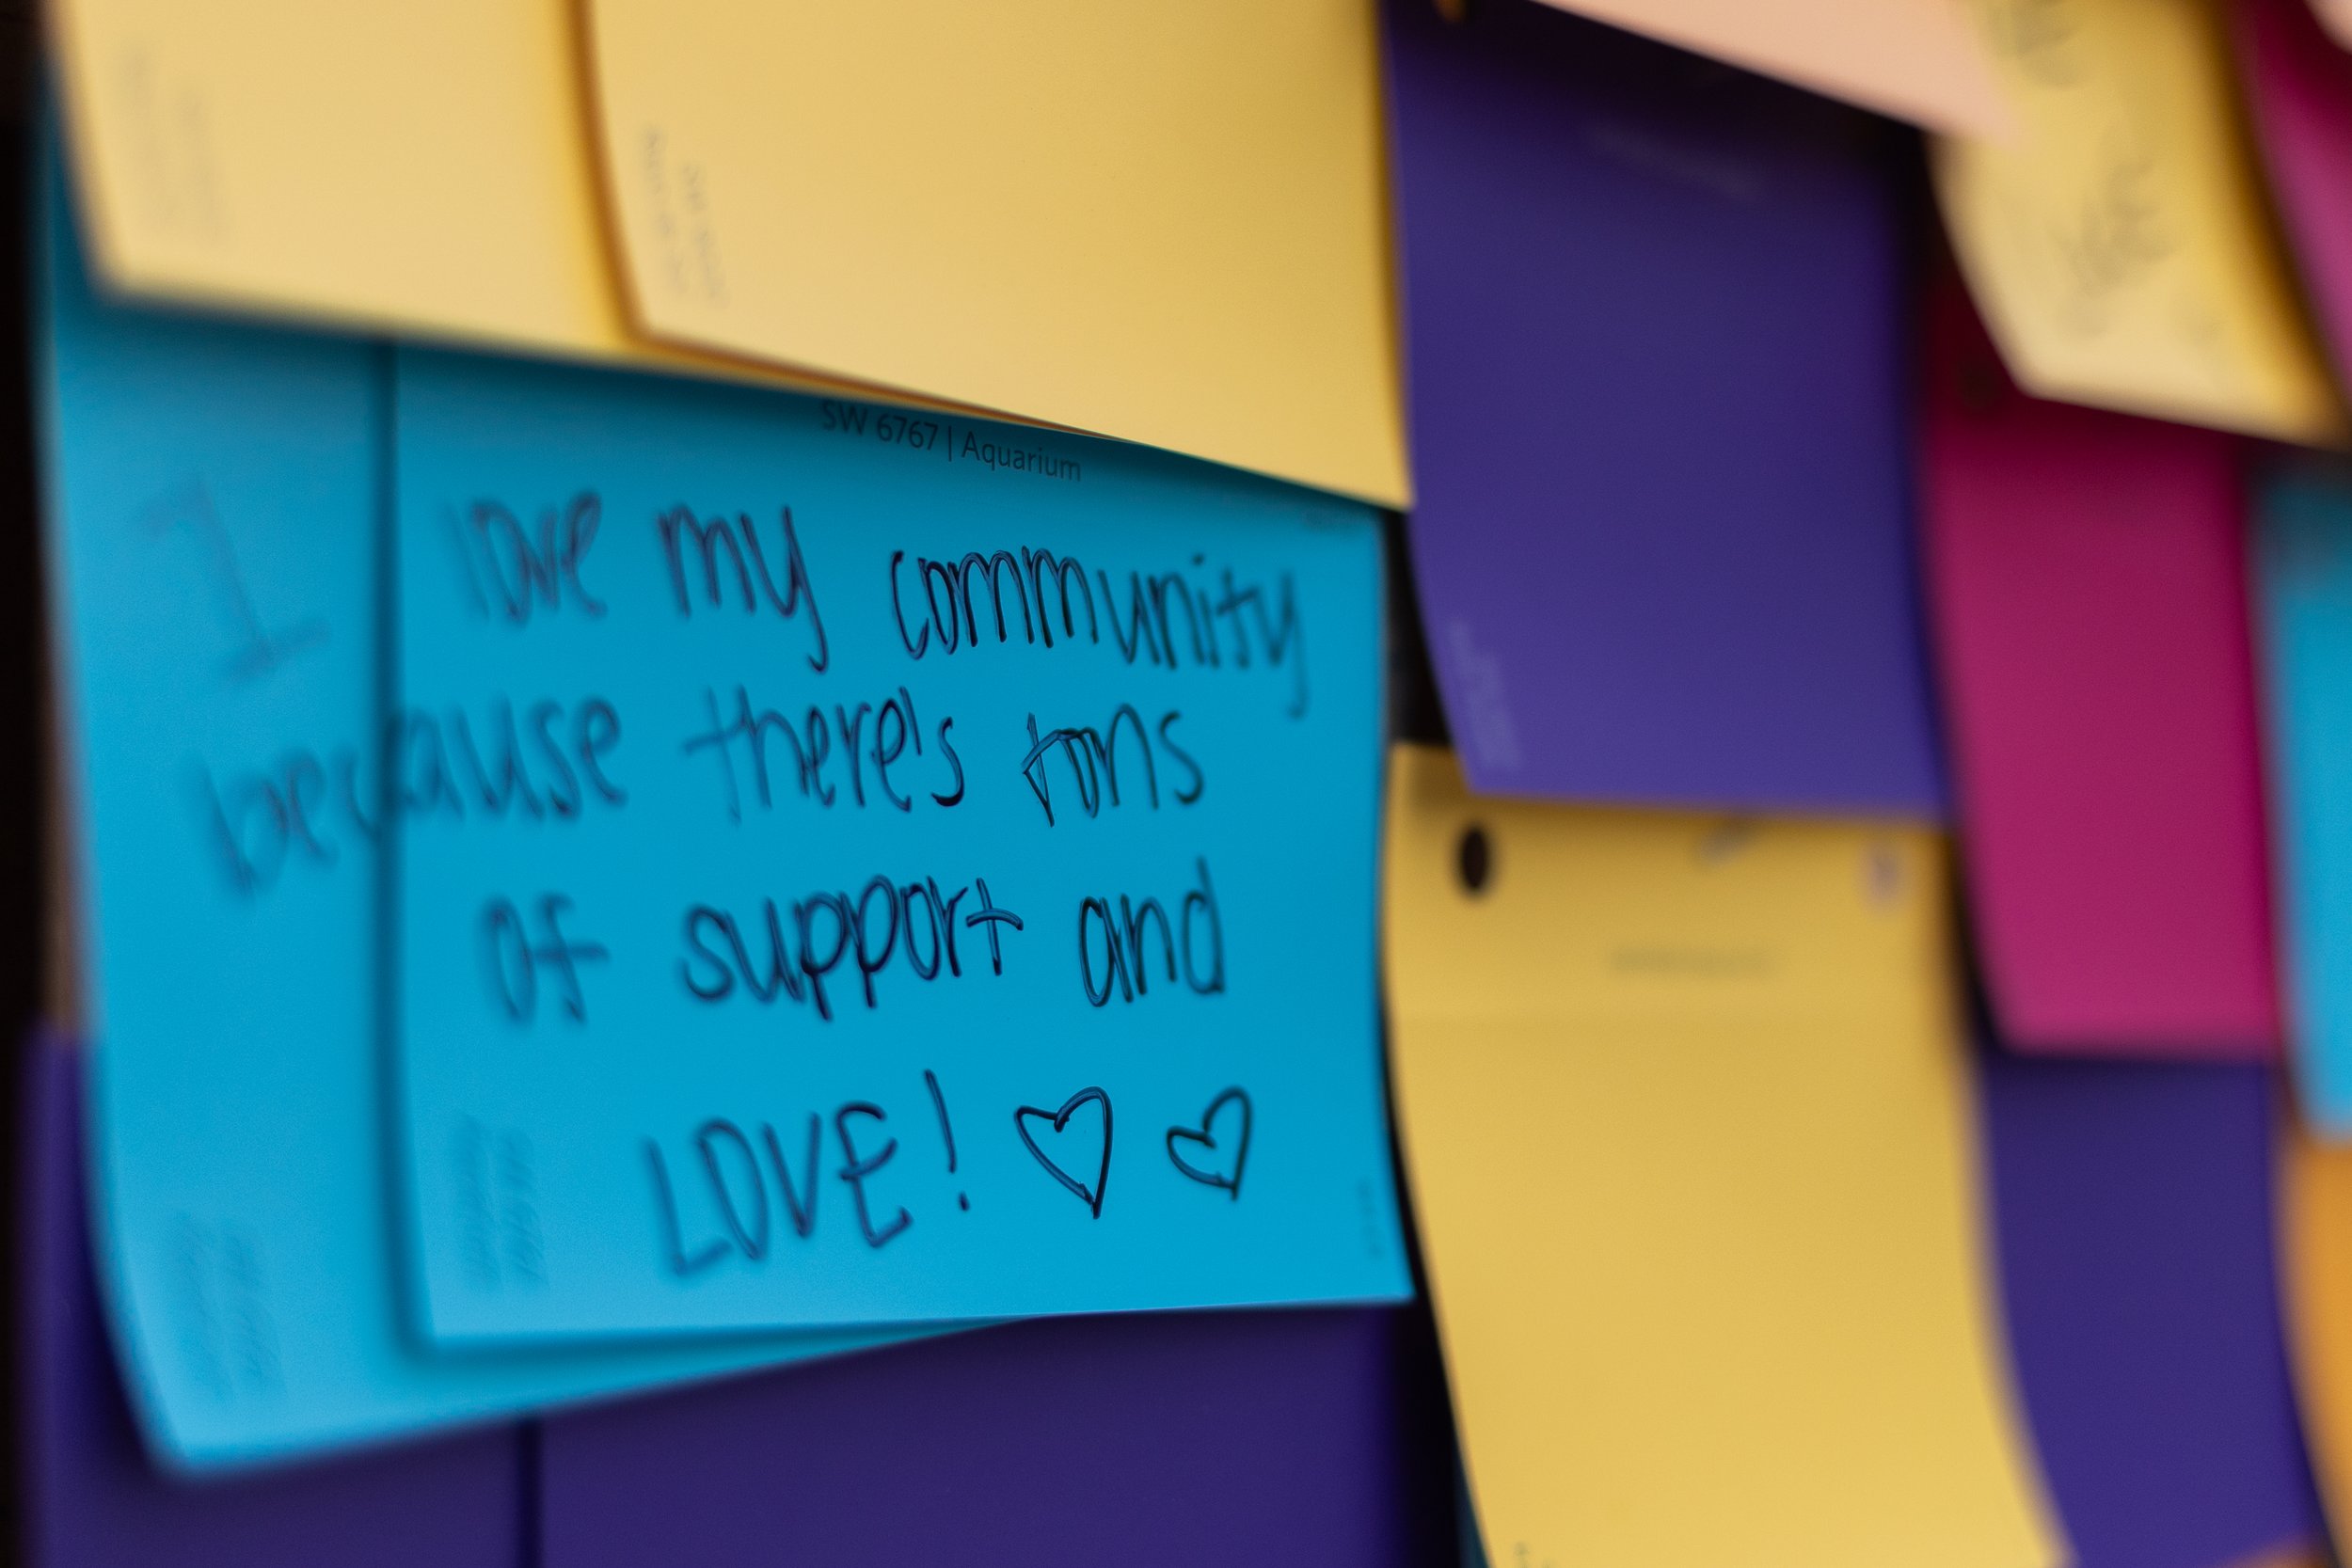 SW 6767 | Aquarium
I love my community
because there's tons
of support and
LOVE! ♡ ♡